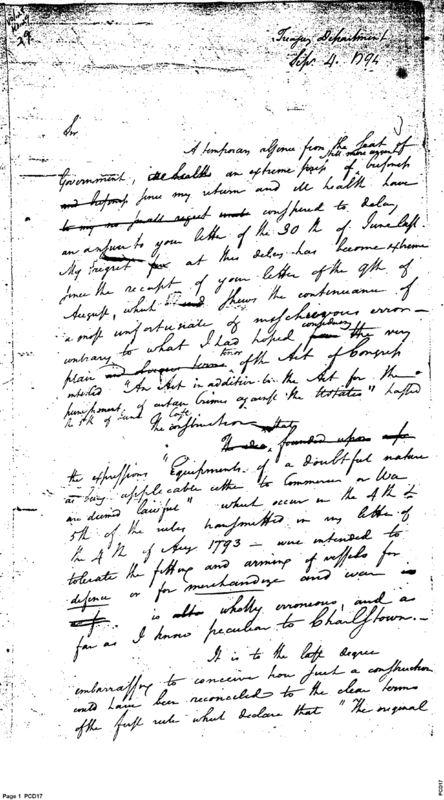 29
Treasury Department
Sepr. 4. 1794
Sir
A temporary absence from the Seat of
Government, ill health an extreme press of business
still more urgent
and business since my return and ill health have
to my no small regret conspired to delay
an answer to your letter of the 30th of June last.
My regret at this delay has become extreme
since the receipt of your letter of the 9th of
August, which shews the continuance of
a most unfortunate & mischievous error
contrary to what I had hoped the very
plain and tenor of the Act of Congress
intitled "An Act in addition to the Act for the
punishment of certain Crimes against the UStates" passed
the 5th of June last.
The construction
founded upon
the expressions "Equipments of a doubtful nature
as being applicable either to Commerce or War
are deemed lawful" which occur in the 4th &
5th of the rules transmitted in my letter of
the 4th of Aug 1793 — were intended to
tolerate the fitting and arming of vessels for
defence or for merchandize and war
is wholly erroneous and as
far as I know peculiar to Charlstown. —
It is to the last degree
embarrassing to conceive how such a construction
could have been reconciled to the clear terms
of the first rule which declare that "The original
Page 1 PCD17
PCD17